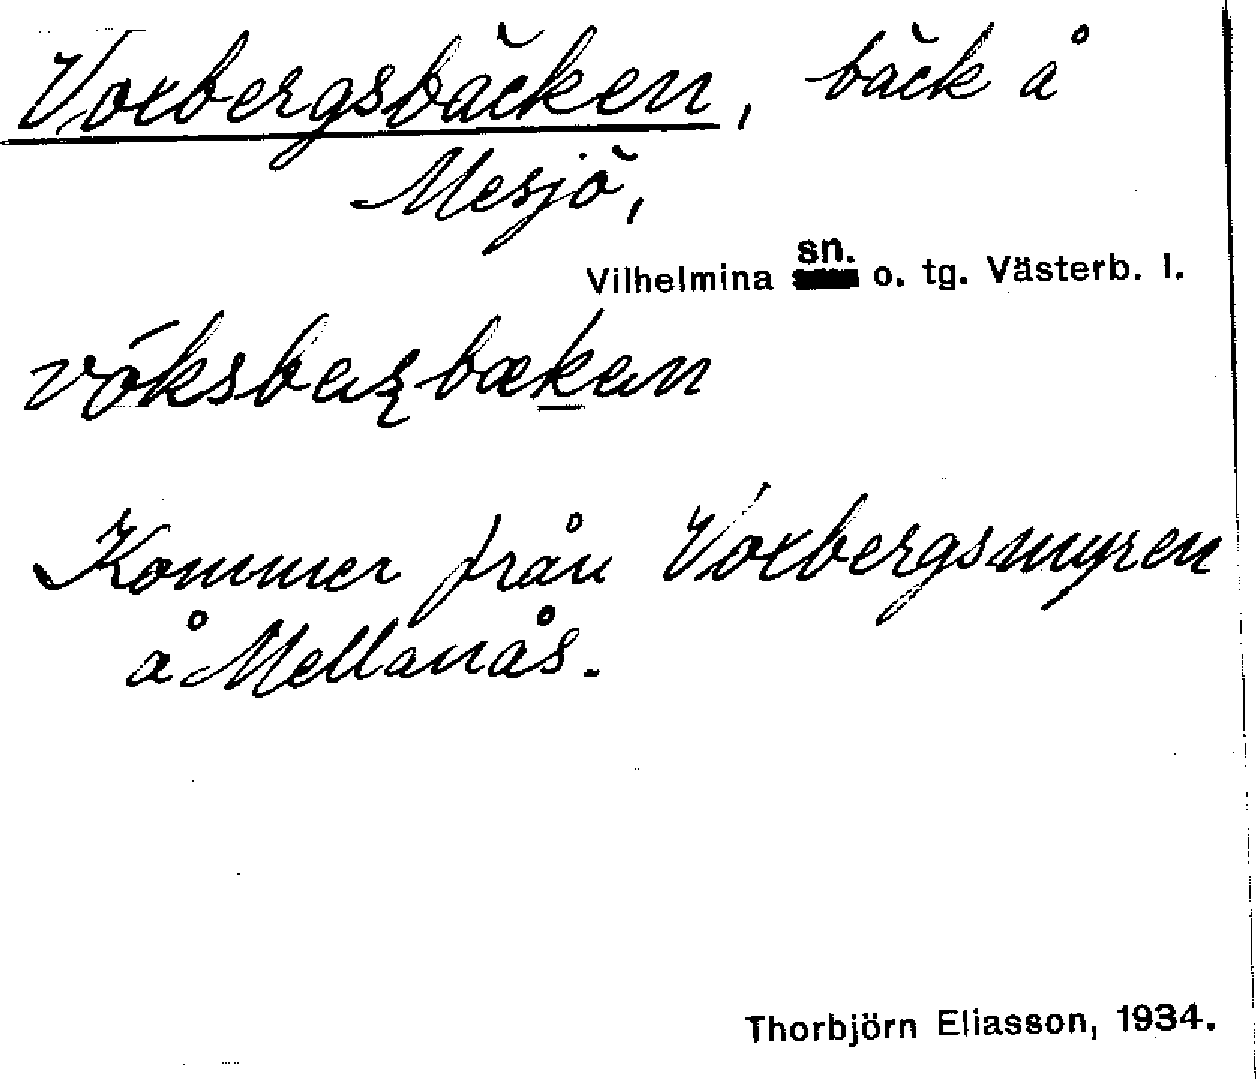 Voxbergsbäcken, bäck å
Mesjö,
Vilhelmina sn. o. tg. Västerb. l.
Kommer från Voxbergsmyren
å Mellanås.
Thorbjörn Eliasson, 1934.